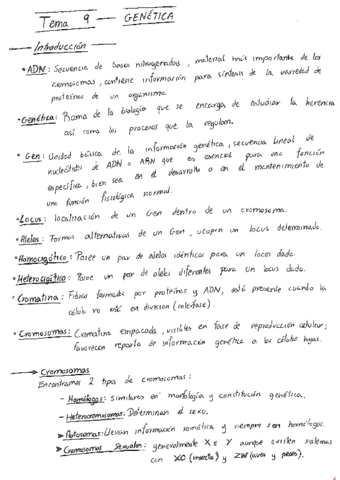 Tema 9 — GENÉTICA
Introducción
• ADN: Secuencia de bases nitrogenadas, material más importante de los
cromosomas, contiene información para síntesis de la variedad de
proteínas de un organismo.
• Genética: Rama de la biología que se encarga de estudiar la herencia
así como los procesos que la regulan.
• Gen: Unidad básica de la información genética, secuencia lineal de
nucleótidos de ADN o ARN que es esencial para una función
específica, bien sea en el desarrollo o en el mantenimiento de
una función fisiológica normal.
• Locus: localización de un Gen dentro de un cromosoma.
• Alelos: Formas alternativas de un Gen, ocupan un locus determinado.
• Homocigótico: Posee un par de alelos idénticos para un locus dado.
• Heterocigótico: Posee un par de alelos diferentes para un locus dado.
• Cromatina: Fibras formadas por proteínas y ADN, está presente cuando la
célula no está en división (interfase).
• Cromosomas: Cromatina empacada, visibles en fase de reproducción celular;
favorecen reparto de información genética a las células hijas.
Cromosomas
Encontramos 2 tipos de cromosomas:
- Homólogos: similares en morfología y constitución genética.
- Heterocromosomas: Determinan el sexo.
➤ Autosomas: Llevan información somática y siempre son homólogos.
➤ Cromosomas Sexuales: generalmente X e Y aunque existen sistemas
con XO (insecto) y ZW (aves y peces).